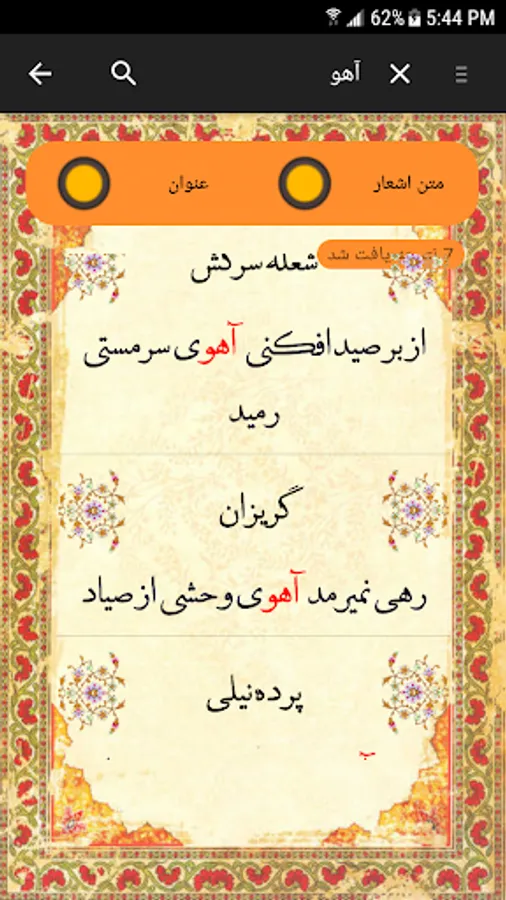 62% 5:44 PM
آهو
متن اشعار
عنوان
7 یافت شد
شعله سرکش
از بر صید افکنی آهوی سرمستی
رمید
گریزان
رهی نمیرمد آهوی وحشی از صیاد
پرده نیلی